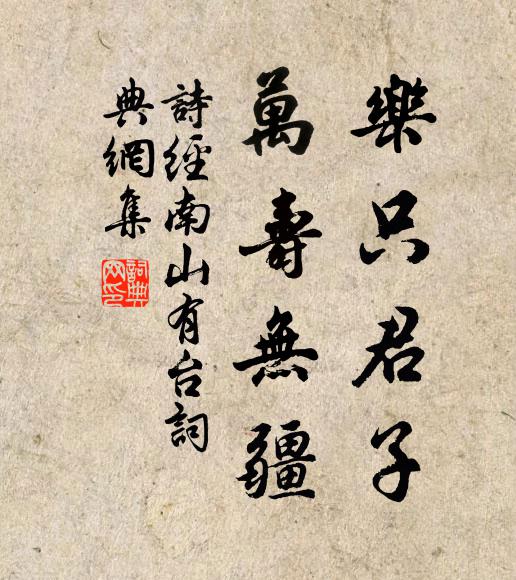 樂只君子
萬壽無疆
詩經南山有台詞
典網集
詞典網印